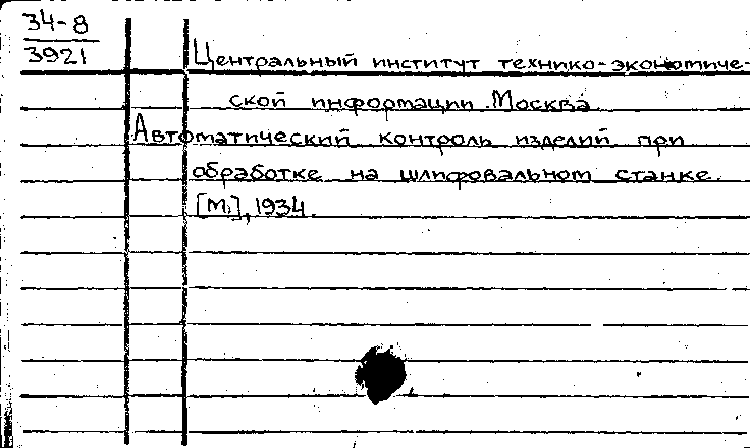 34-8
3921
Центральный институт технико-экономиче-
ской информации. Москва.
Автоматический контроль изделий при
обработке на шлифовальном станке.
[М.], 1934.